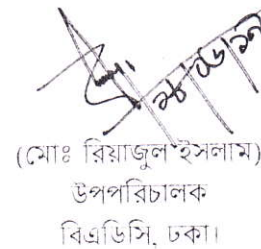 (মোঃ রিয়াজুল ইসলাম)
উপপরিচালক
বিএডিসি, ঢকা।